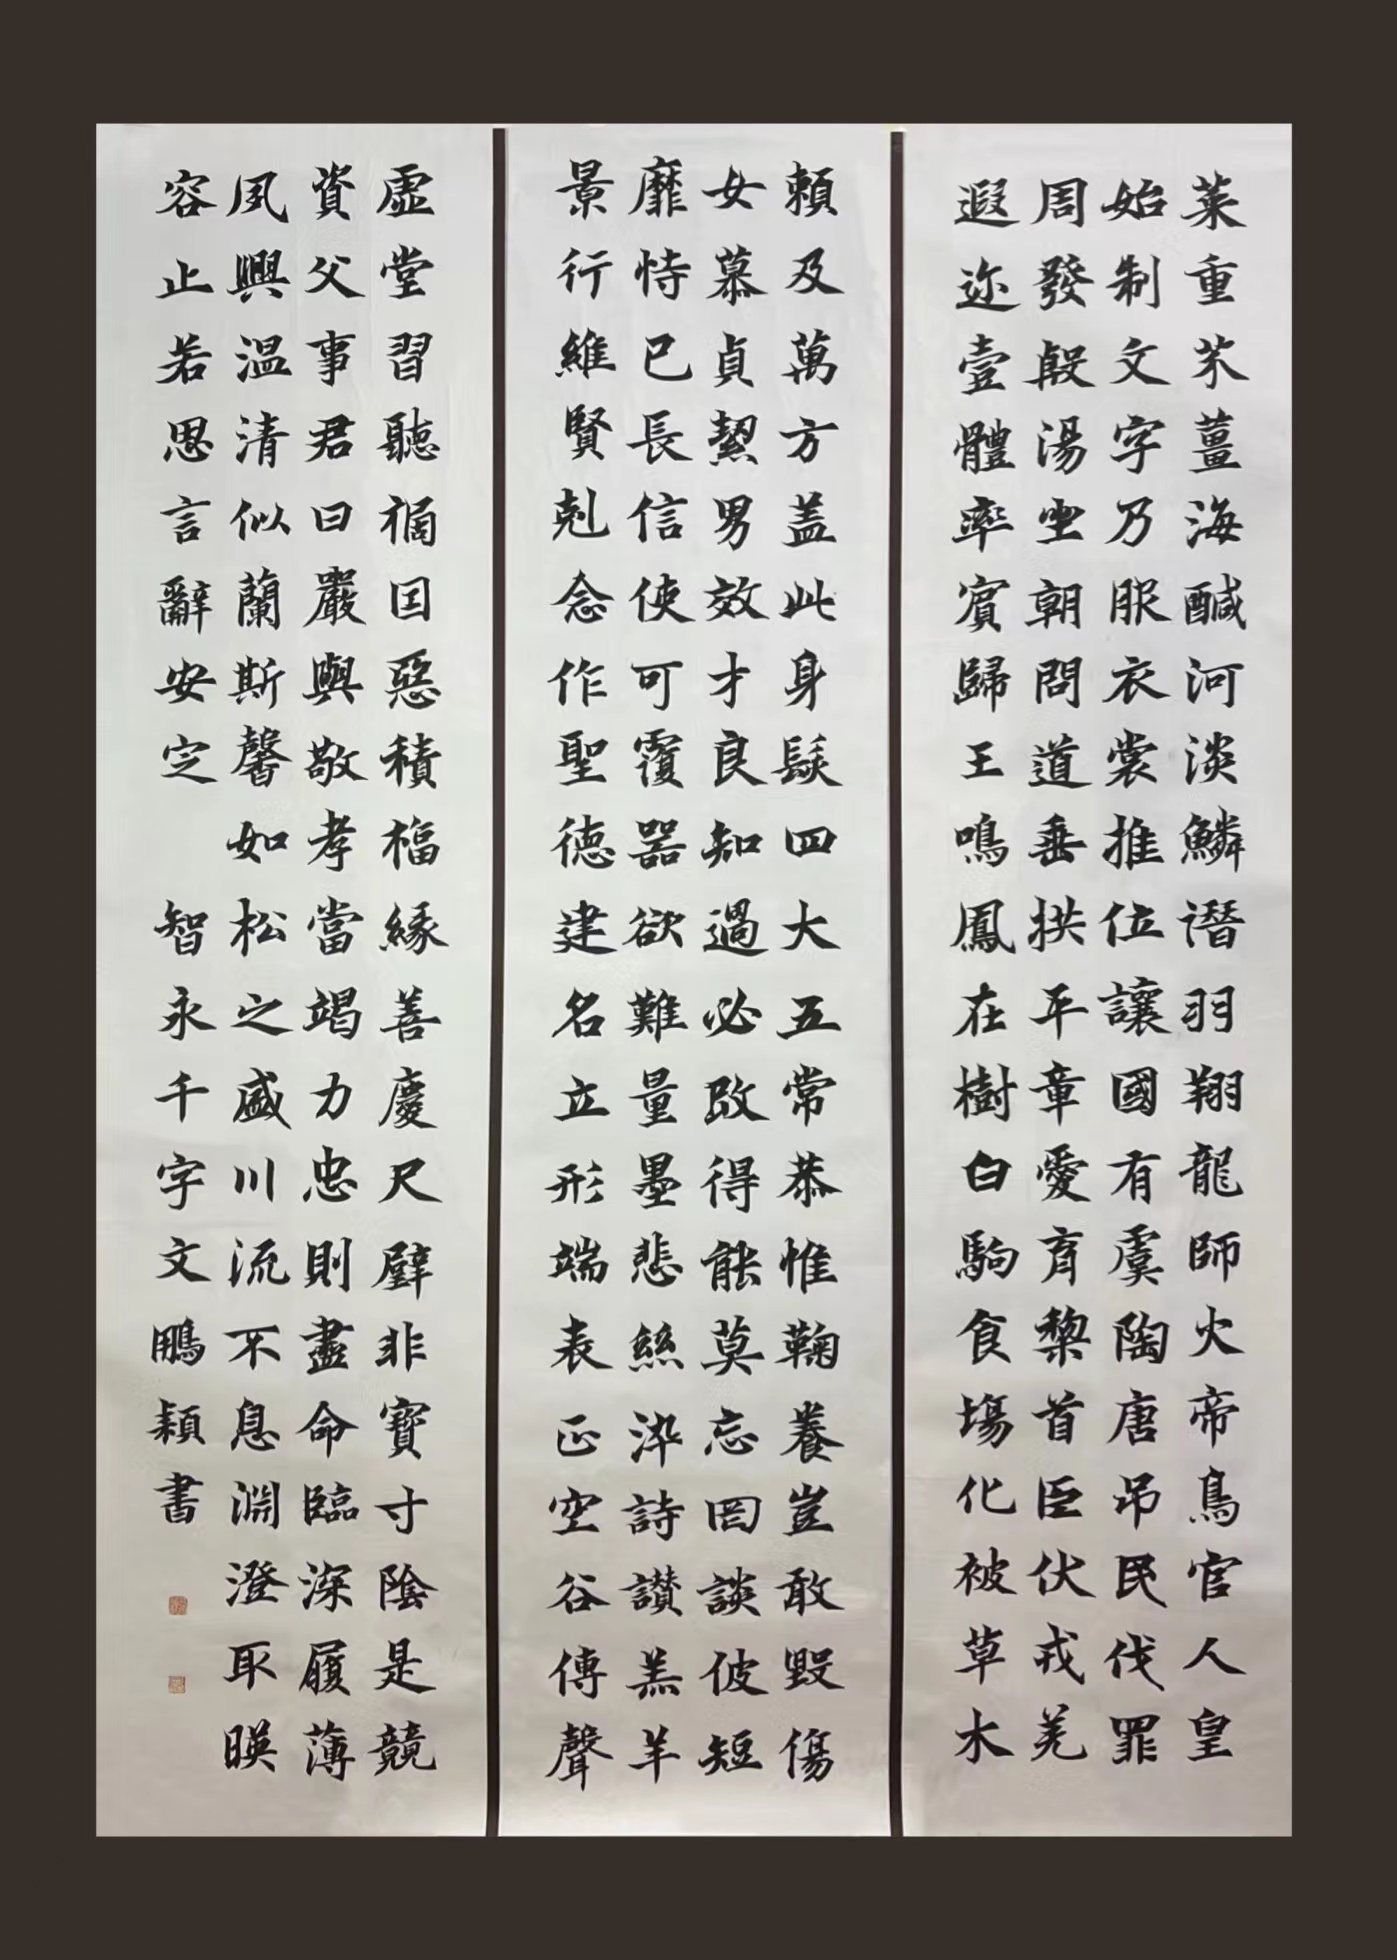 菜重芥薑海醎河淡鱗潛羽翔龍師火帝鳥官人皇
始制文字乃服衣裳推位讓國有虞陶唐吊民伐罪
周發殷湯坐朝問道垂拱平章愛育黎首臣伏戎羌
遐迩壹體率賓歸王鳴鳳在樹白駒食場化被草木
賴及萬方盖此身髮四大五常恭惟鞠養豈敢毀傷
女慕貞絜男效才良知過必改得能莫忘罔談彼短
靡恃己長信使可覆器欲難量墨悲絲染詩讚羔羊
景行維賢剋念作聖德建名立形端表正空谷傳聲
虛堂習聽禍因惡積福緣善慶尺璧非寶寸陰是競
資父事君曰嚴與敬孝當竭力忠則盡命臨深履薄
夙興温清似蘭斯馨如松之盛川流不息淵澄取暎
容止若思言辭安定 智永千字文鵬穎書